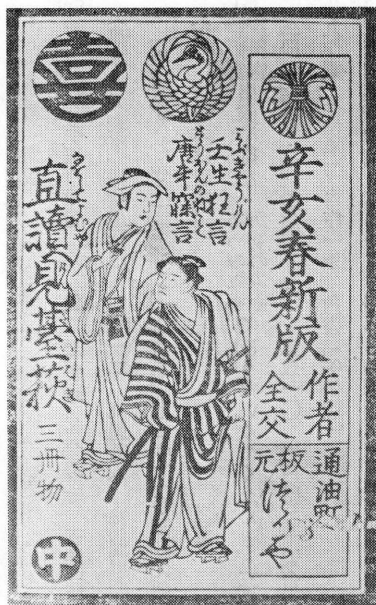 辛亥春新版
作者
全交
通油町
板元
つるや
壬生狂言
寐言
直讀見臺萩
三冊物
中